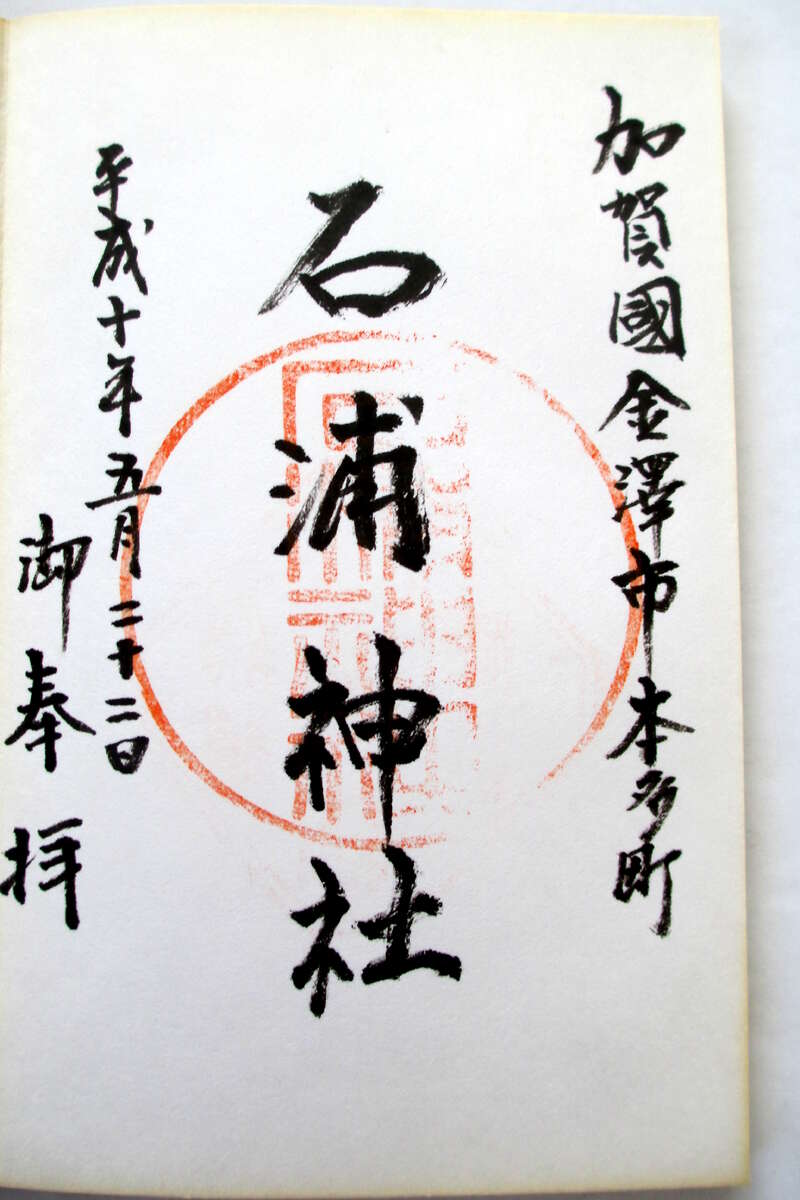 加賀國金澤市本多町
石浦神社
平成十年五月二十二日
御奉拝